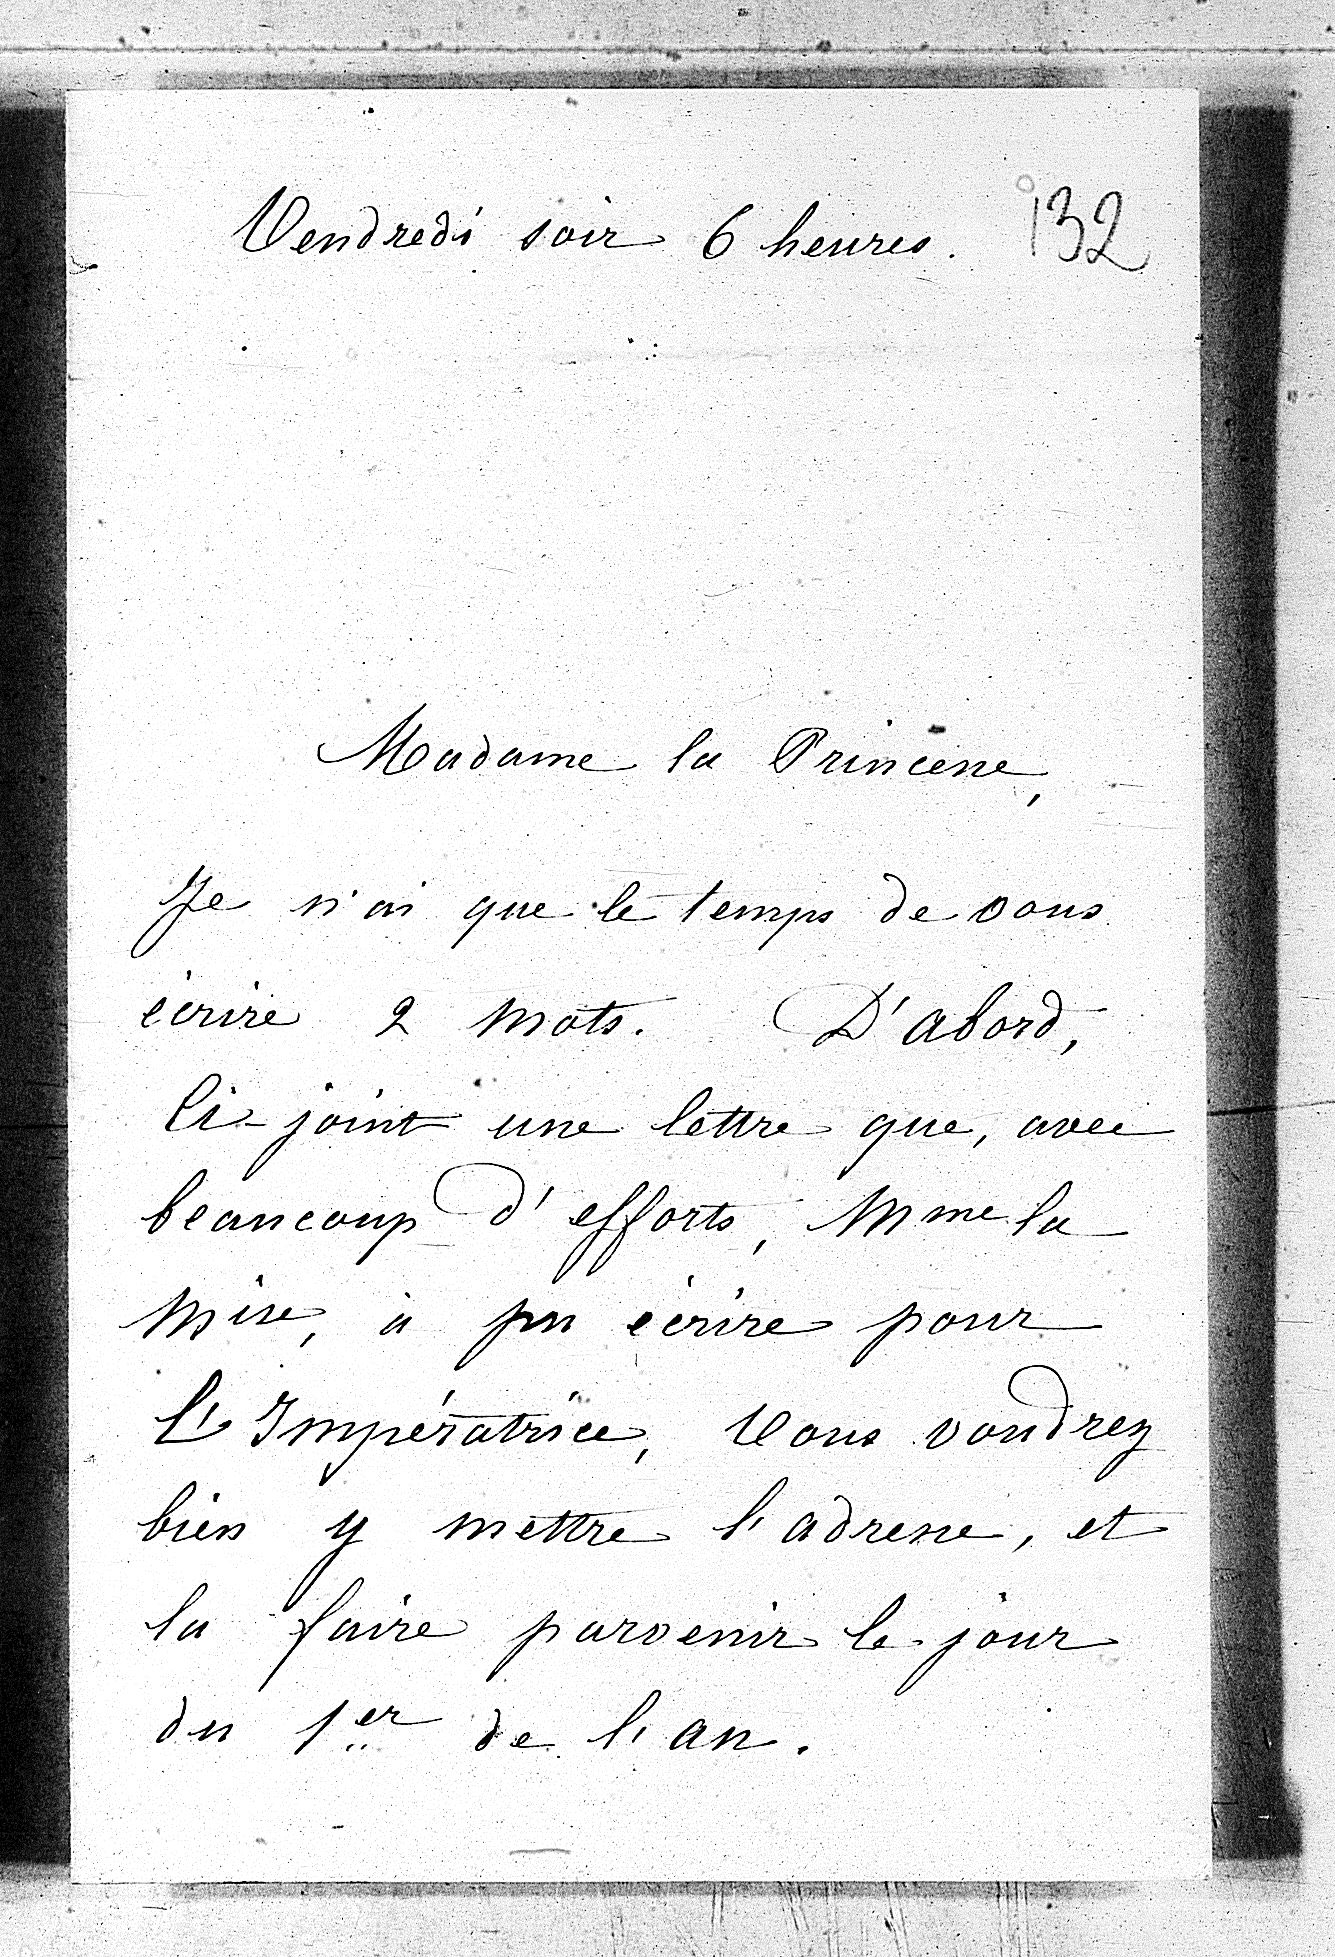 Vendredi soir 6 heures. 132
Madame la Princesse,
Je n'ai que le temps de vous
écrire 2 mots. D'abord,
Ci-joint une lettre que, avec
beaucoup d'efforts, Mme la
Mise, a pu écrire pour
L'Impératrice, Vous voudrez
bien y mettre l'adresse, et
la faire parvenir le jour
du 1er de l'an.